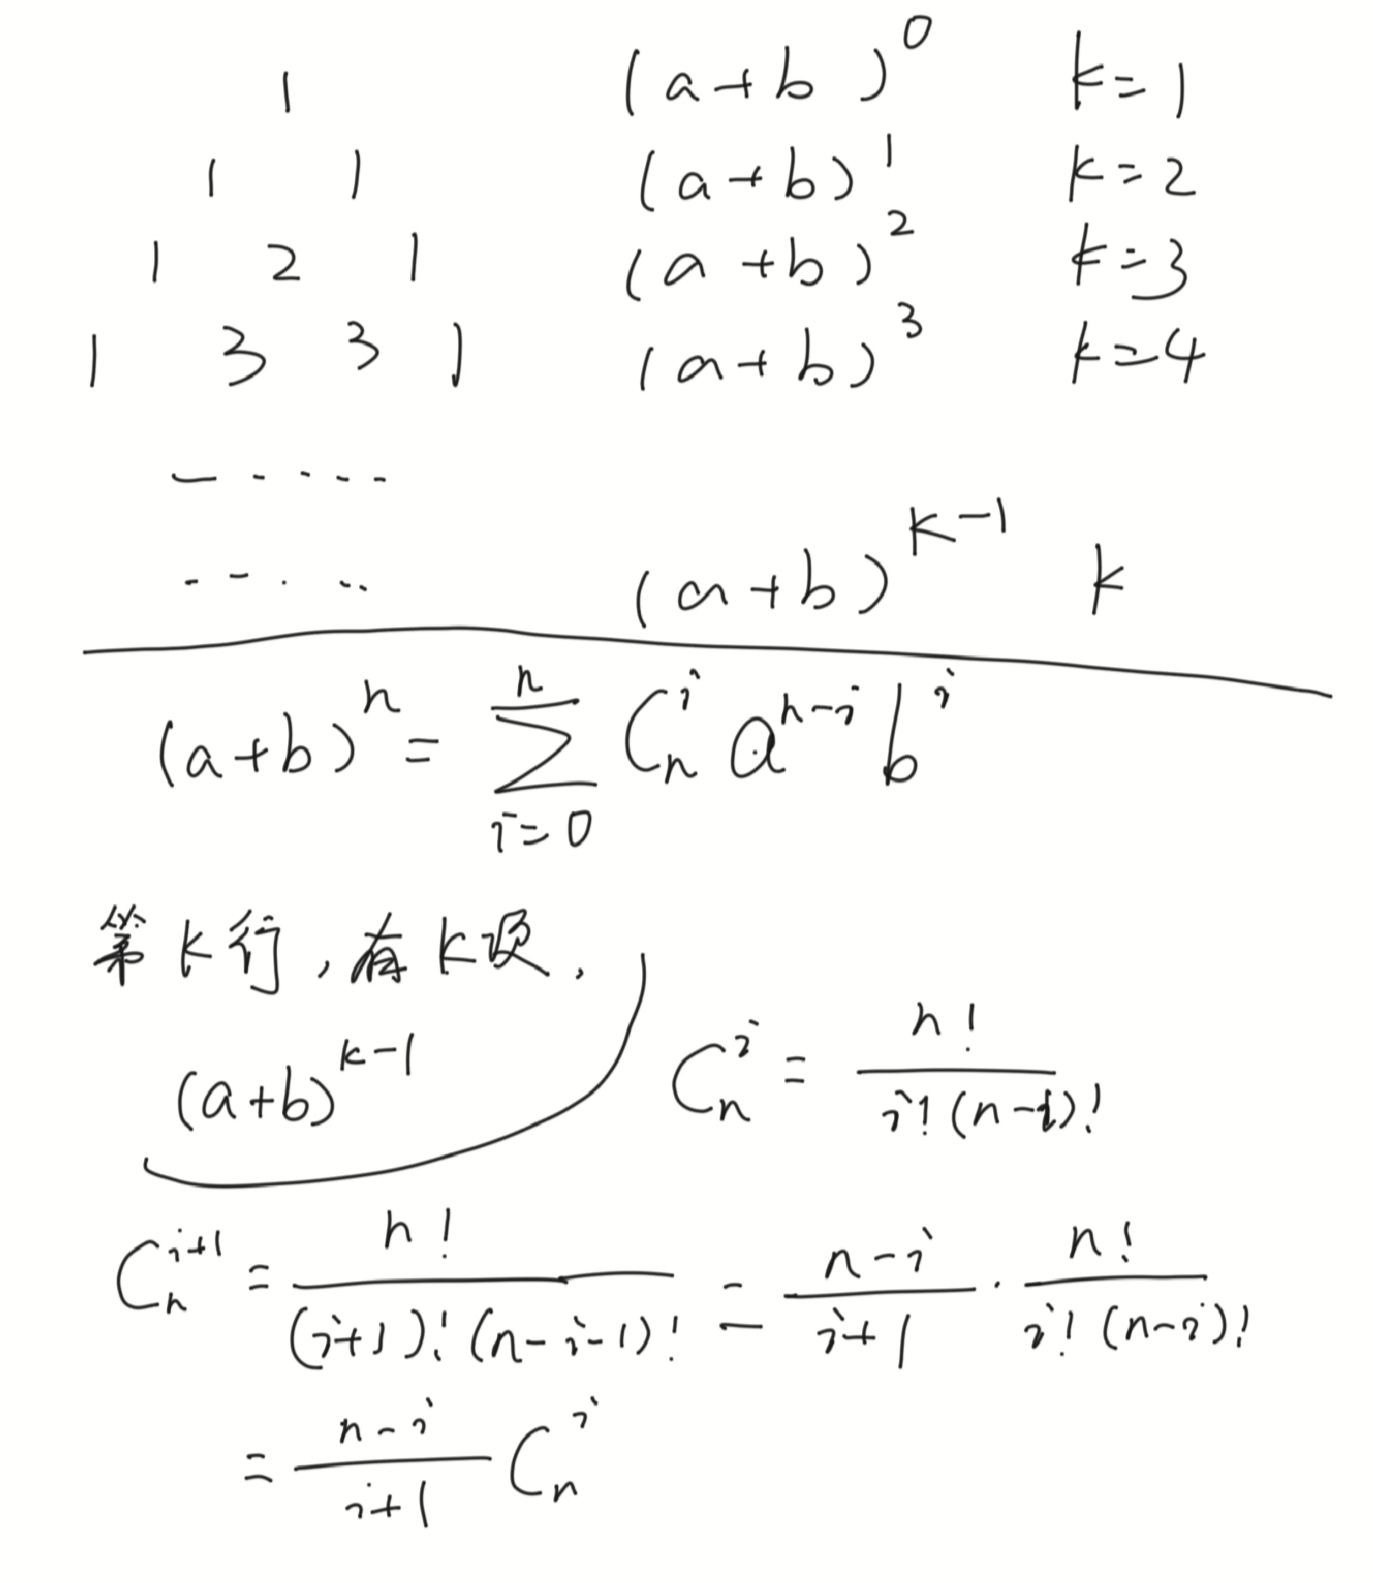 1 (a+b)^0 k=1
1 1 (a+b)^1 k=2
1 2 1 (a+b)^2 k=3
1 3 3 1 (a+b)^3 k=4
— · · · · ·
- - · · ·  (a+b)^{k-1} k
(a+b)^n = \sum_{i=0}^{n} C_n^i a^{n-i} b^i
第k行,有k项.
(a+b)^{k-1}
C_n^i = \frac{n!}{i!(n-i)!}
C_n^{i+1} = \frac{n!}{(i+1)!(n-i-1)!} = \frac{n-i}{i+1} · \frac{n!}{i!(n-i)!}
= \frac{n-i}{i+1} C_n^i